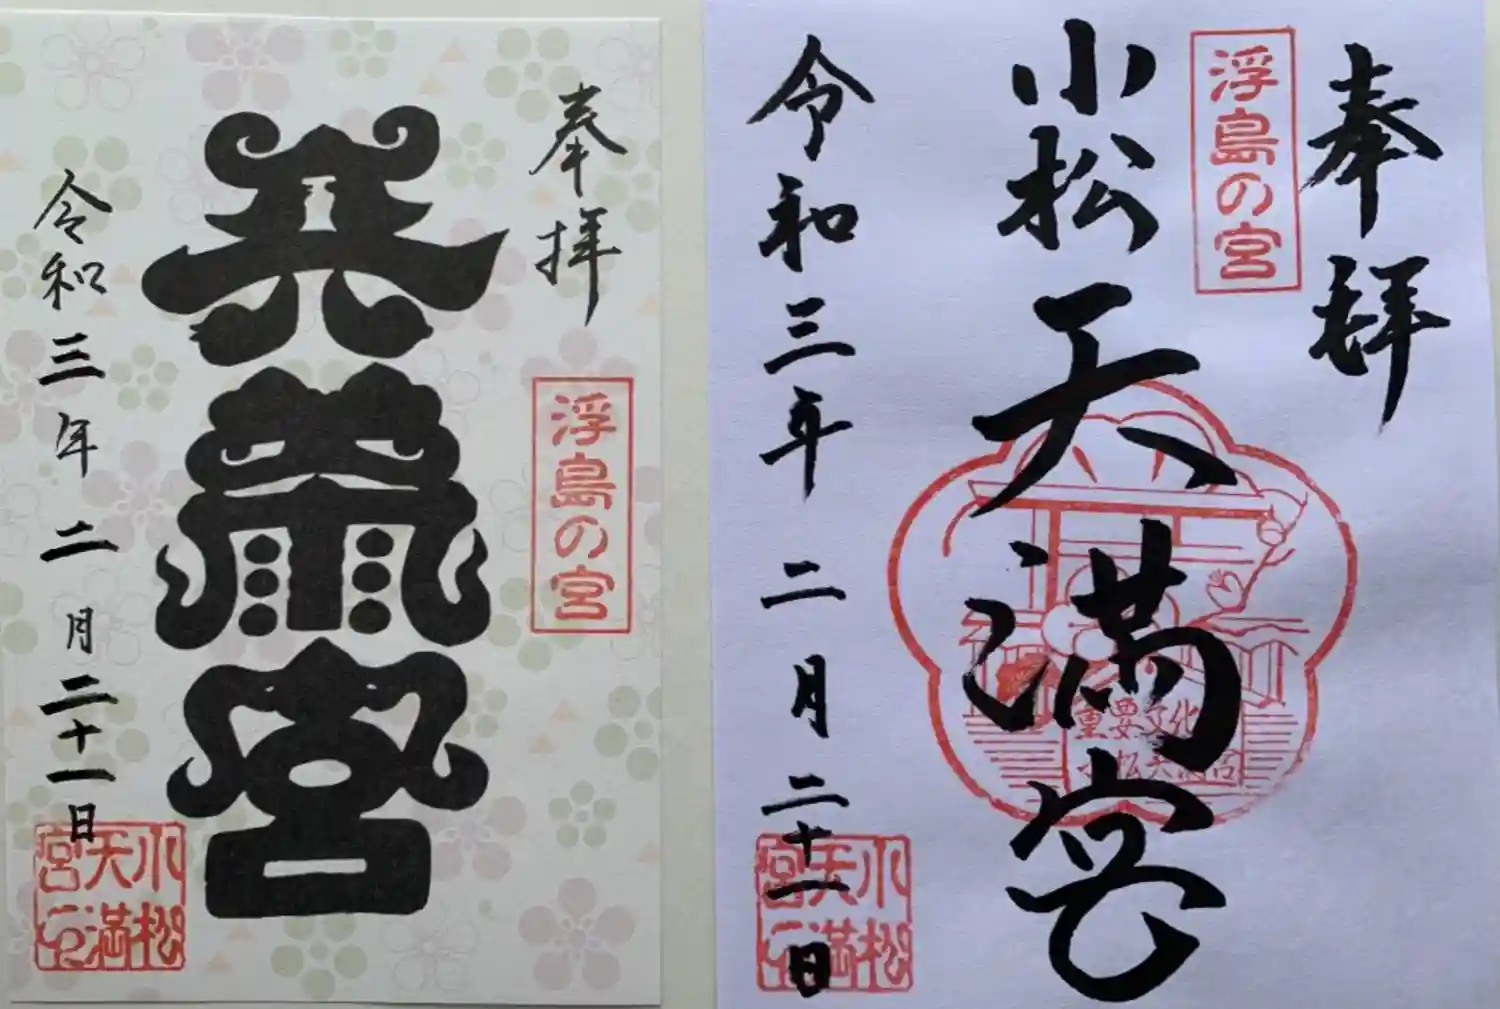 奉拝
浮島の宮
天満宮
令和三年二月二十一日
小松
天満
宮印
奉拝
浮島の宮
小松天満宮
重要文化
小松天満宮
令和三年二月二十一日
小松
天満
宮印